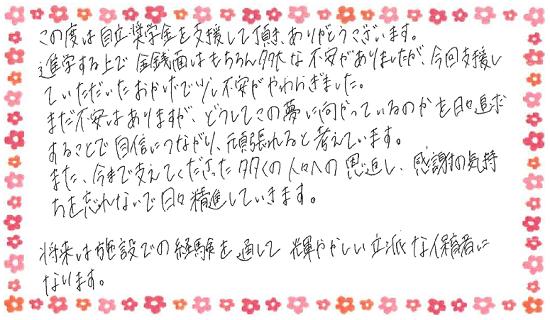 この度は自立奨学金を支援して頂き、ありがとうございます。
進学する上で金銭面はもちろん多大な不安がありましたが、今回支援し
ていただいたおかげで少し不安がやわらぎました。
まだ不安はありますが、どうしてこの夢に向かっているのかを日々追求
することで自信につながり、頑張れると考えています。
また、今まで支えてくださった多くの人々への恩返し、感謝の気持
ちを忘れないで日々精進していきます。
将来は施設での経験を通して輝やかしい立派な保育者に
なります。